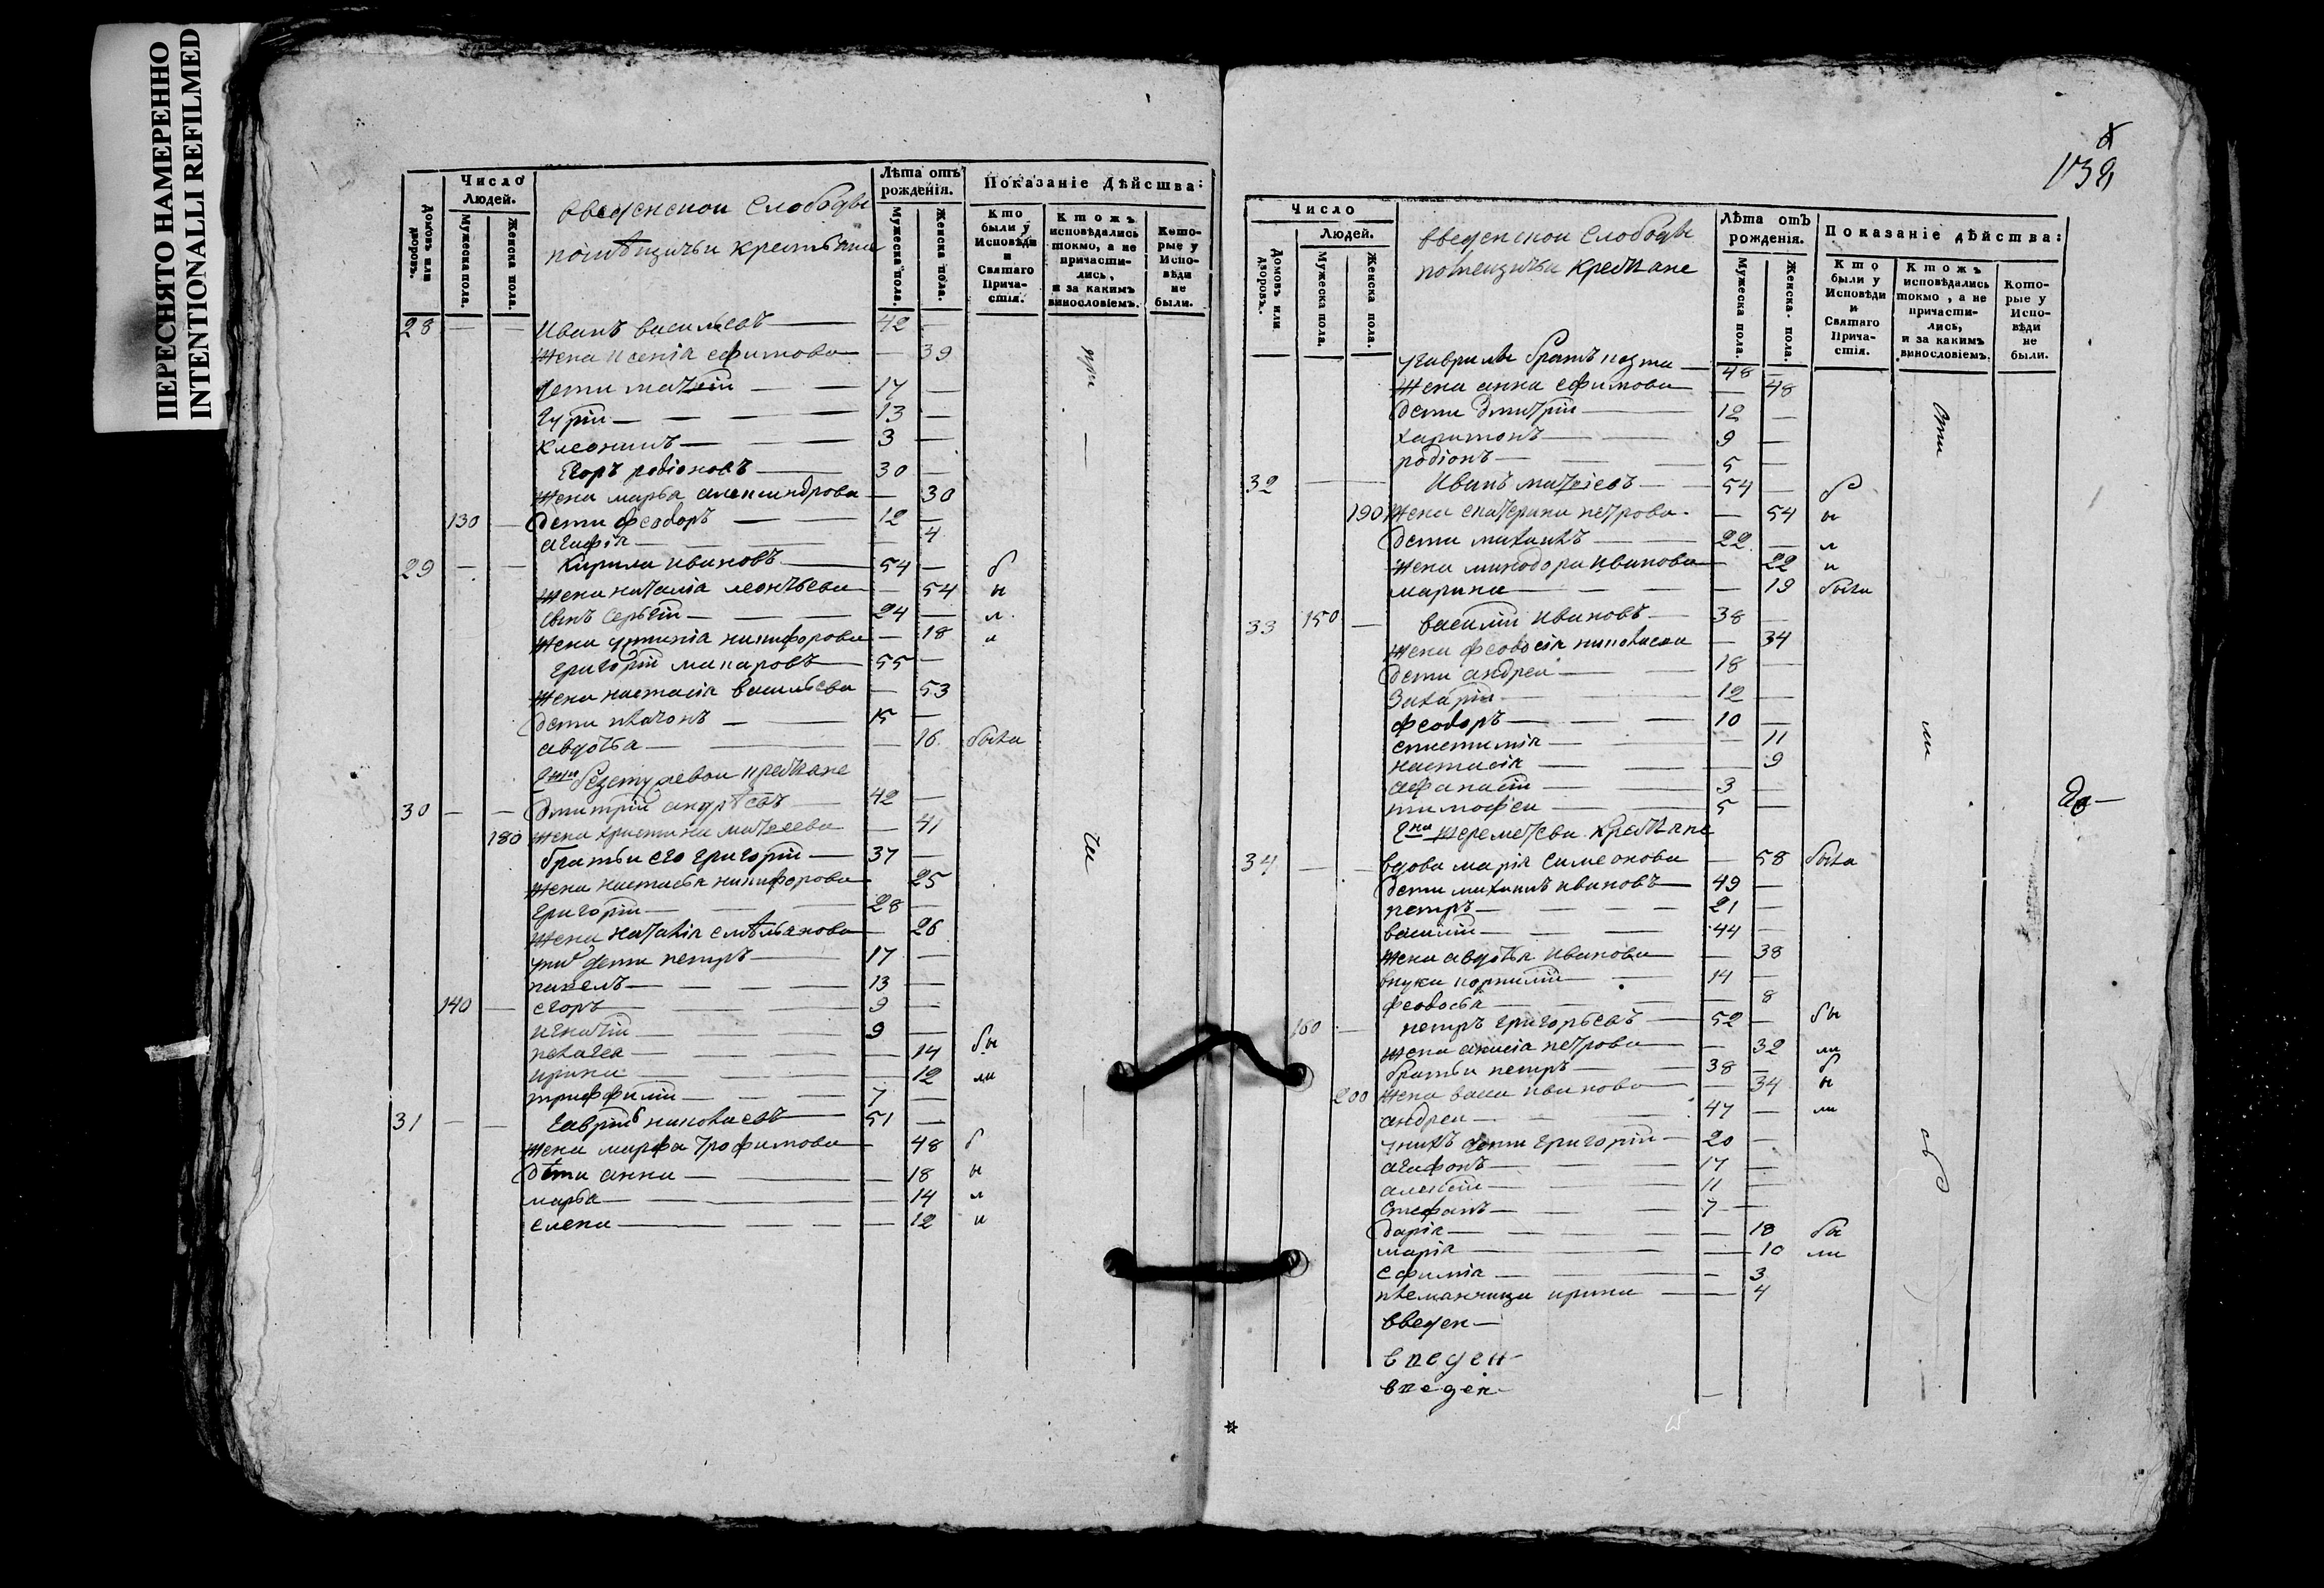 ПЕРЕСНЯТО НАМЕРЕННО
INTENTIONALLI REFILMED
Число Людей.
Домовъ или дворовъ.
Мужеска пола.
Женска пола.
введенскои слободы
помѣщичьи крестьяне
Лѣта отъ рожденія.
Мужеска пола.
Женска пола.
Показаніе дѣйства:
Кто были у Исповѣди и Святаго Причастія.
Ктожъ исповѣдались токмо, а не причастились, и за какимъ винословіемъ.
Которые у Исповѣди не были.
28 — — Иванъ васильевъ — 42 —
Жена ксенія ефимова — 39
дети матвей — 17 —
гурій — 13 —
3 —
Егоръ родіоновъ — 30 —
Жена марѳа александрова — 30
130 — дети феодоръ — 12 —
агафія — 4
29 — — Кирила ивановъ — 54 — б
Жена наталіа леонтьева — 54 ы
сынъ сергѣй — 24 — л
Жена устинія никифорова — 18 и
григорій макаровъ — 55 —
Жена настасія васильева — 53
дети платонъ — 15 —
авдотья — 16 была
крестьяне
30 — — дмитрій андрѣевъ — 42 —
180 жена христина матвеева — 41
братьи его григорій — 37 —
Жена настасья никифорова — 25
григорій — 28 —
Жена наталія емѣльянова — 26
дети петръ — 17 —
павелъ — 13 —
140 — егоръ — 9 —
игнатій — 9 —
пелагея — 14 бы
ирина — 12 ли
триффилій — 7 —
31 — — гаврилъ николаевъ — 51 —
Жена марфа трофимова — 48 б
дѣти анна — 18 ы
марѳа — 14 л
елена — 12 и
при
—
ча
139
Число Людей.
Домовъ или дворовъ.
Мужеска пола.
Женска пола.
введенскои слободы
помещичьи крестьяне
Лѣта отъ рожденія.
Мужеска пола.
Женска пола.
Показаніе дѣйства:
Кто были у Исповѣди и Святаго Причастія.
Ктожъ исповѣдались токмо, а не причастились, и за какимъ винословіемъ.
Которые у Исповѣди не были.
у гаврилы братъ козма — 48 —
Жена анна ефимова — 48
дети дмитрій — 12 —
харитонъ — 9 —
родіонъ — 5 —
32 — — Иванъ матвеевъ — 54 — б
190 Жена екатерина петрова — 54 ы
дети михаилъ — 22 — л
Жена минодора иванова — 22 и
марина — 19 была
33 150 — василій ивановъ — 38 —
Жена феодосія николаева — 34
дети андреи — 18 —
захарій — 12 —
феодоръ — 10 —
11
настасія — 9
афанасій — 3 —
тимофеи — 5 —
шереметева крестьяне
34 — — вдова марія симеонова — 58 была
дети михаилъ ивановъ — 49 —
петръ — 21 —
василій — 44 —
Жена авдотья иванова — 38
внуки корнилій — 14 —
феодосья — 8
160 — петръ григорьевъ — 52 — бы
Жена анисія петрова — 32 ли
братьи петръ — 38 — б
200 Жена васса иванова — 34 ы
андреи — 47 — ли
у нихъ дети григорій — 20 —
агафонъ — 17 —
алексѣй — 11 —
стефанъ — 7 —
дарія — 18 бы
марія — 10 ли
ефимія — 3
племянница ирина — 4
введен—
введен—
введен—
сти
ли
съ